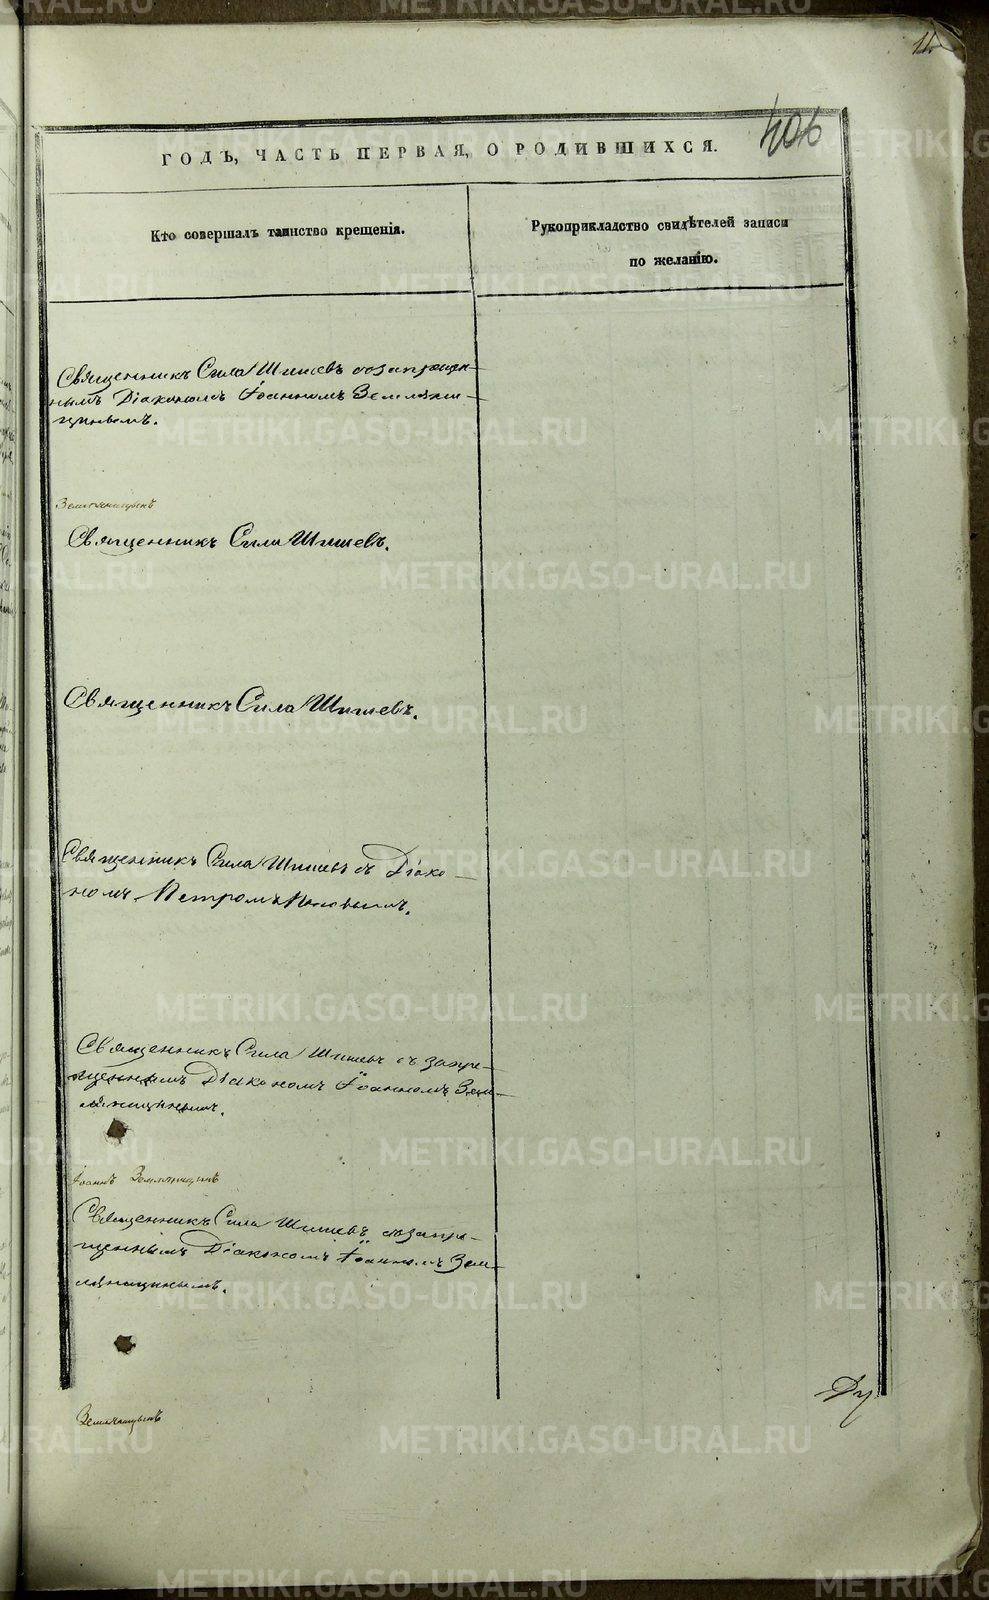 11
406
ГОДЪ, ЧАСТЬ ПЕРВАЯ, О РОДИВШИХСЯ.
Кто совершалъ таинство крещенія.
Рукоприкладство свидѣтелей записи
по желанію.
Священникъ Сила Шишевъ созапрещен-
нымъ Діакономъ Іоанномъ Земляни-
цинымъ.
Земляницынъ
Священникъ Сила Шишевъ.
Священникъ Сила Шишевъ.
Священникъ Сила Шишевъ съ Діако-
номъ Петромъ
Священникъ Сила Шишевъ съ запре-
щеннымъ Діакономъ Іоанномъ Зем-
ляницинымъ.
Іоаннъ Земляницынъ
Священникъ Сила Шишевъ созапре-
щеннымъ Діакономъ Іоанномъ Зем-
ляницинымъ.
Ду
Земляницынъ
METRIKI.GASO-URAL.RU